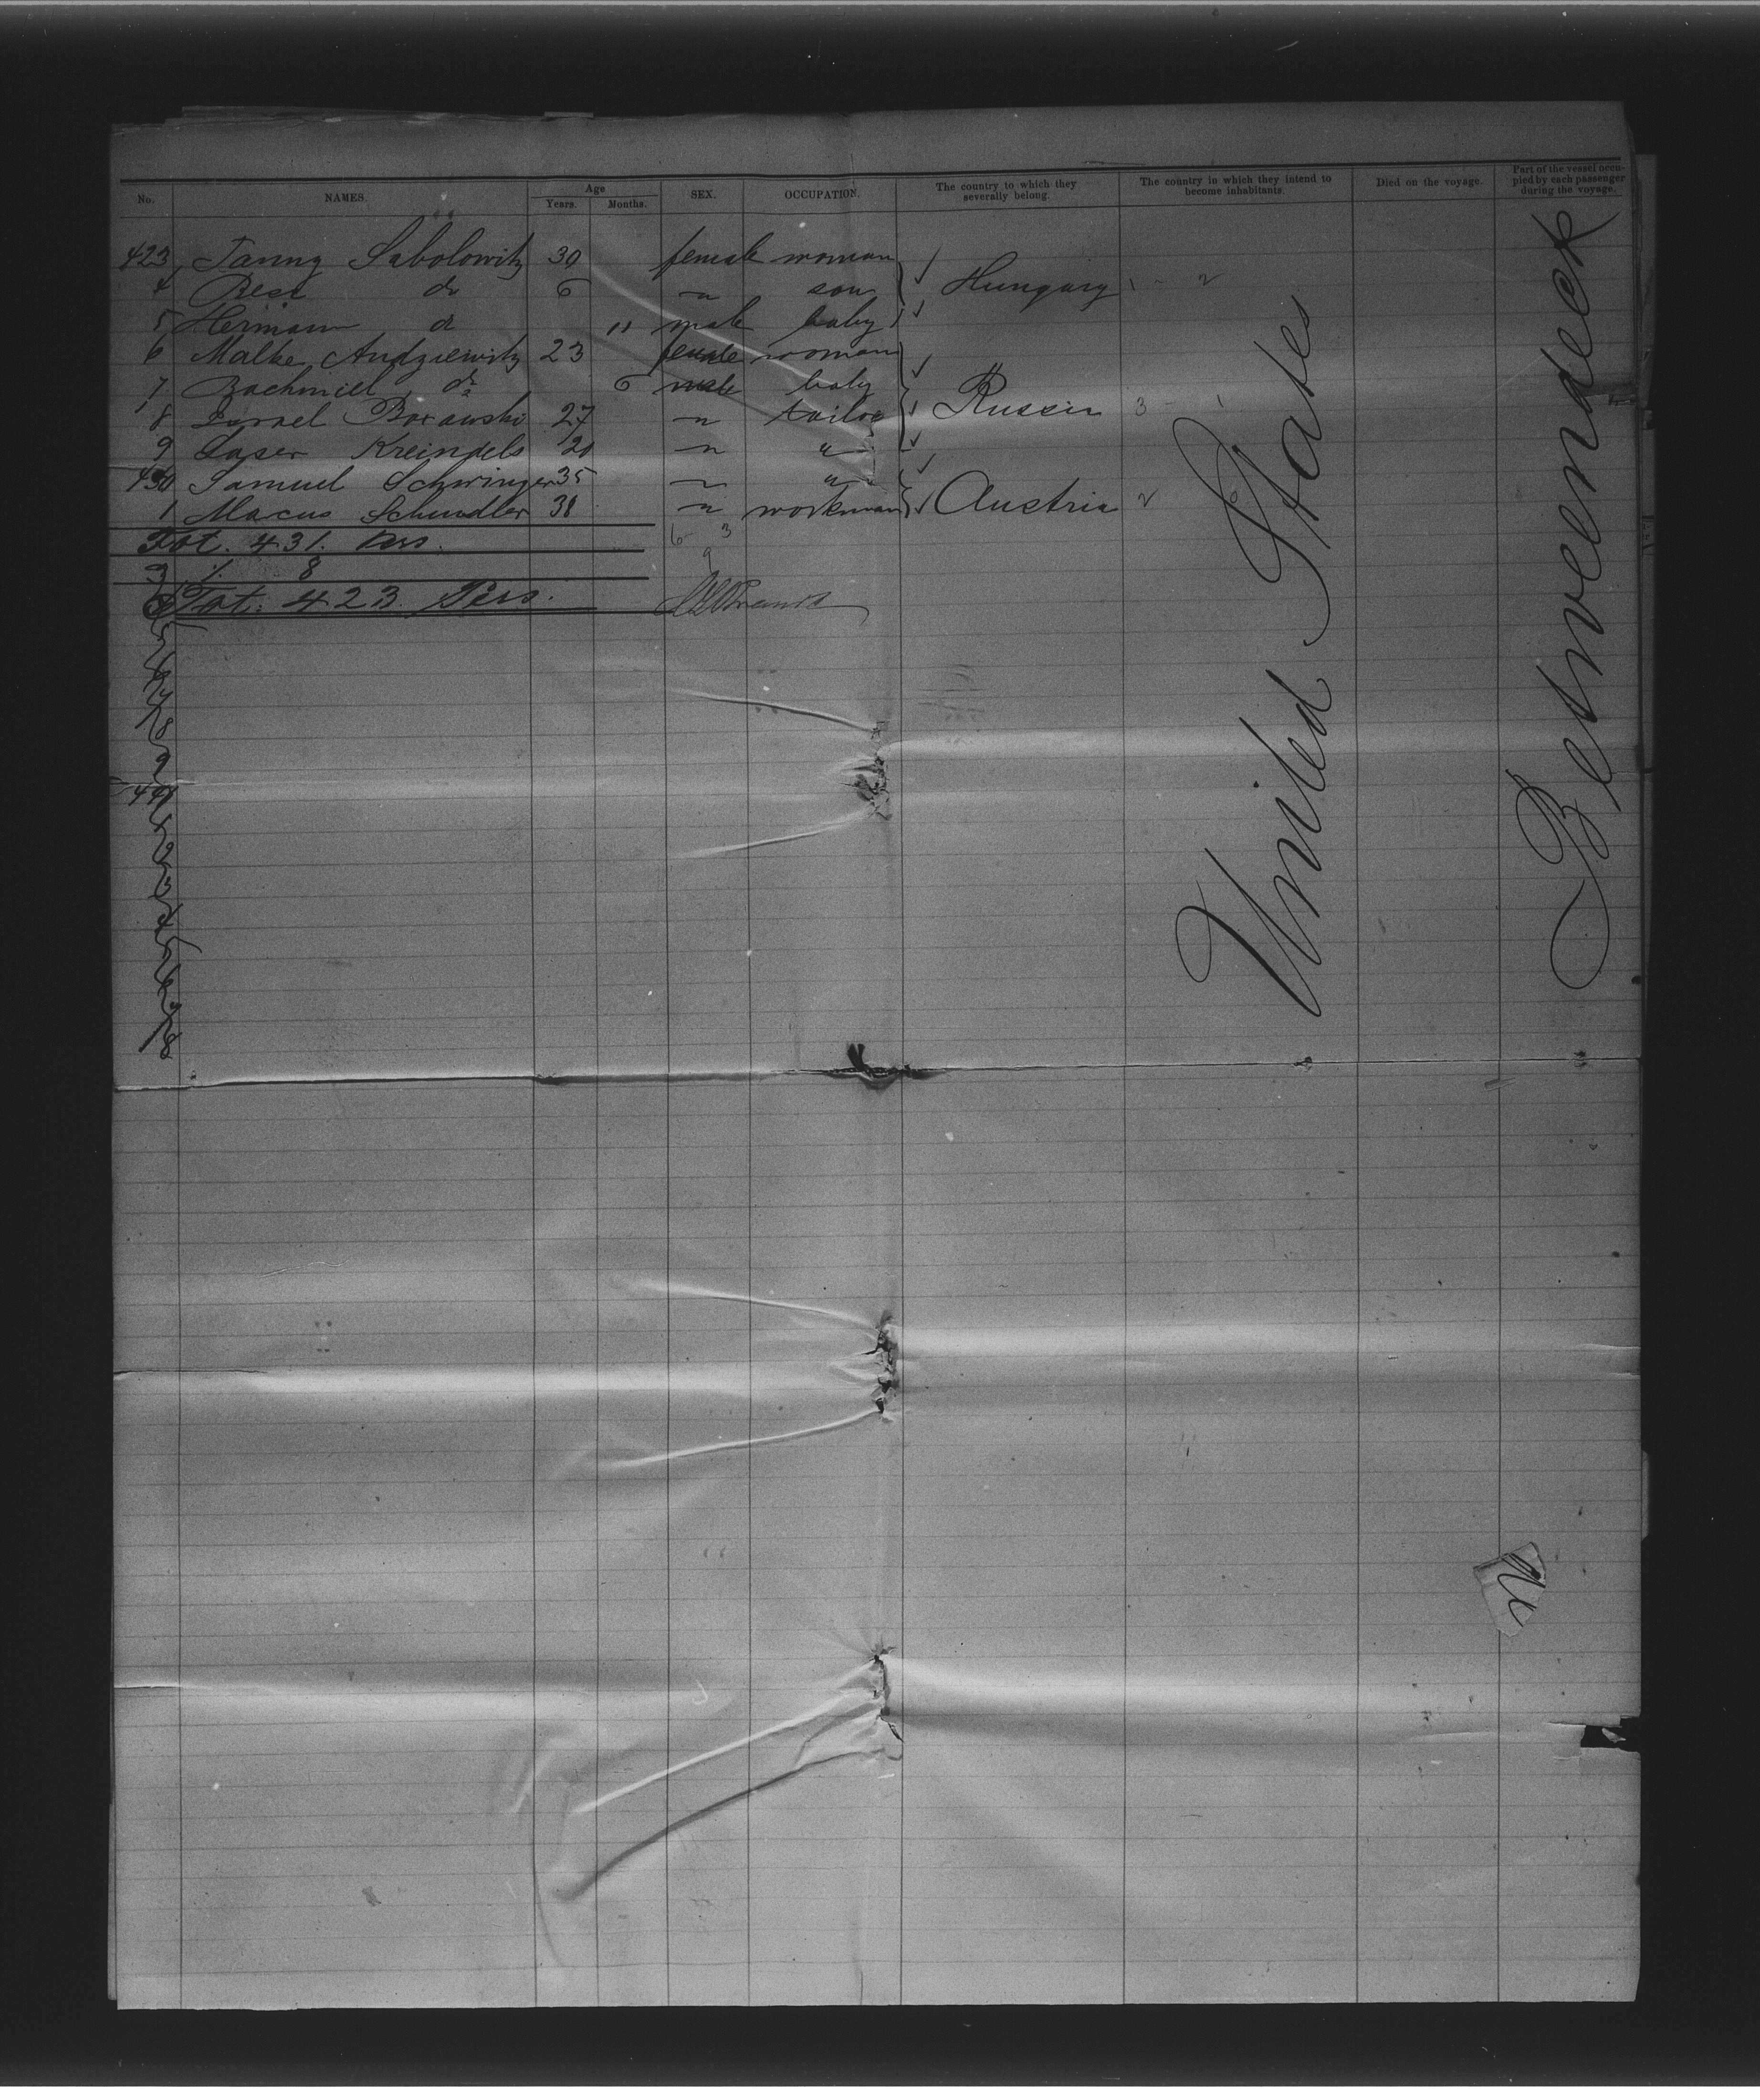 No. NAMES. Age Years. Months. SEX. OCCUPATION. The country to which they severally belong. The country in which they intend to become inhabitants. Died on the voyage. Part of the vessel occupied by each passenger during the voyage.
423 Fanny Sabolowitz 30 female woman
4 Resi do 6 " son Hungary 1 - 2
5 Hermann do 11 male baby
6 Malke Andziewitz 23 female woman
7 Rachmiel do 6 male baby
8 Israel Borawski 27 " tailor Russia 3 - 1
9 Laser Kreindels 20 " "
430 Samuel Schwinger 35 " "
1 Marcus Schindler 38 " workman Austria 2
Tot. 431 Pers. 6 3
9
2 1. 8
3 Tot: 423 Pers.
5
6
7
8
9
440
1
2
3
4
5
6
7
8
United States
Betweendeck